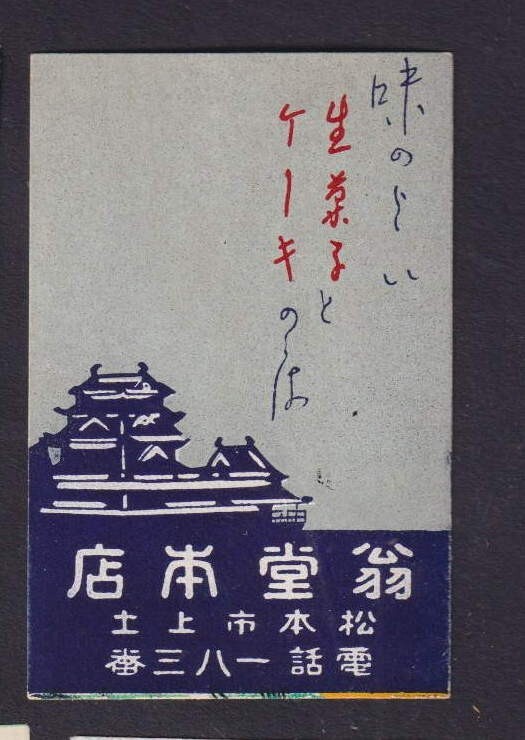 味のよい
生菓子と
ケーキのみせ
翁堂本店
松本市上土
電話一八三番